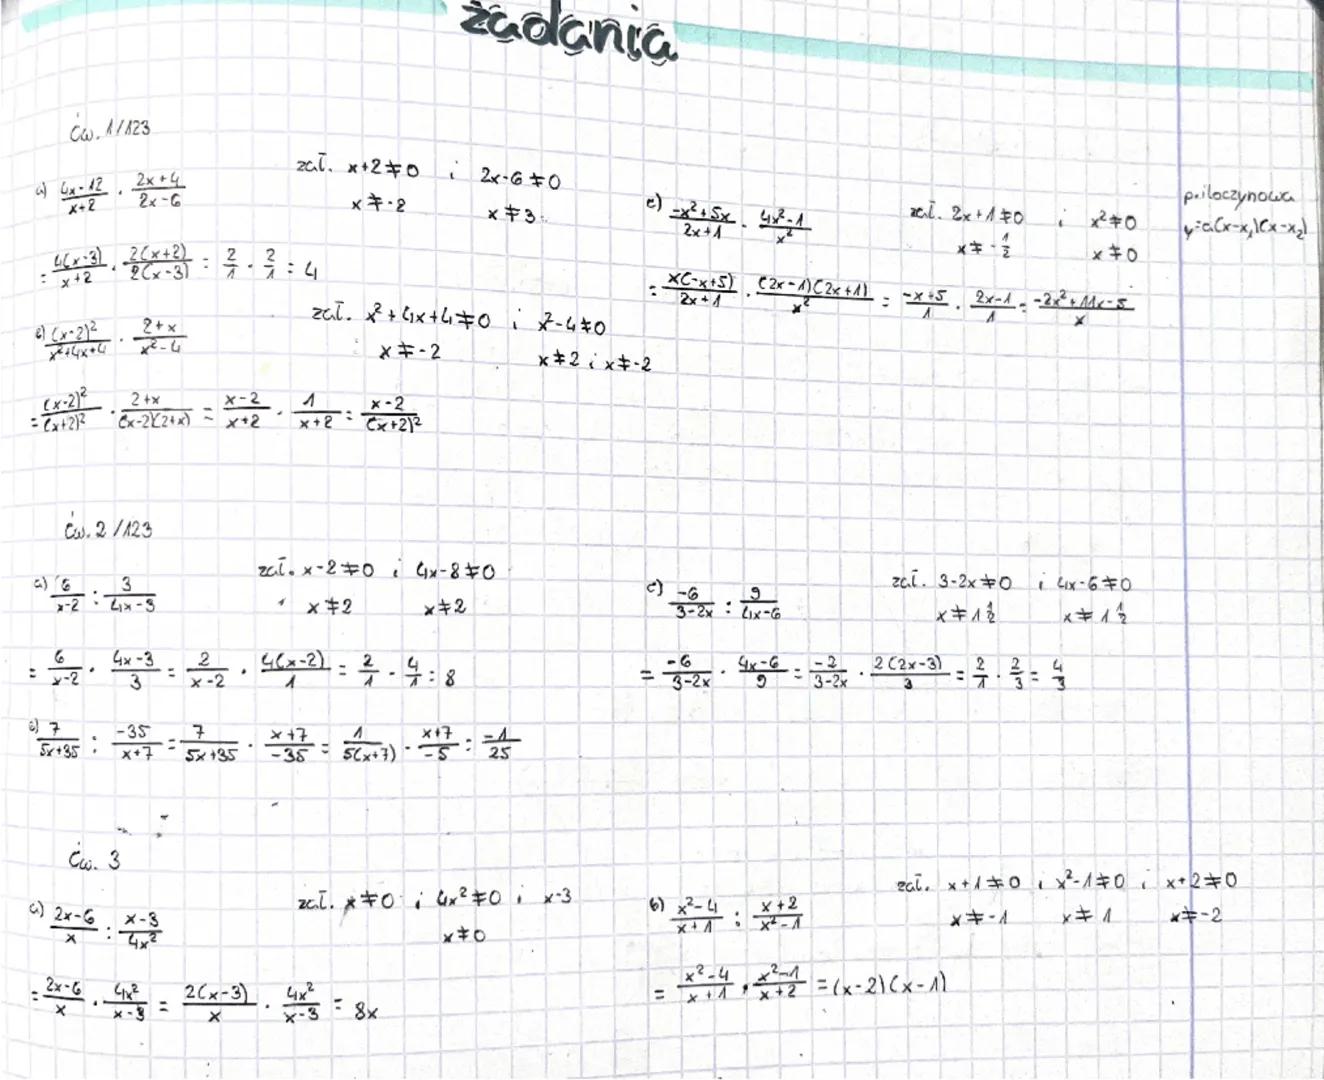 zadania
Ćw. 1/123
a) \frac{4x-12}{x+2} · \frac{2x+4}{2x-6} zał. x+2≠0 i 2x-6≠0
x≠-2 x≠3
= \frac{4(x-3)}{x+2} · \frac{2(x+2)}{2(x-3)} = \frac{2}{1} · \frac{2}{1} = 4
b) \frac{(x-2)²}{x²+4x+4} · \frac{2+x}{x²-4} zał. x²+4x+4≠0 i x²-4≠0
x≠-2 x≠2 i x≠-2
= \frac{(x-2)²}{(x+2)²} · \frac{2+x}{(x-2)(2+x)} = \frac{x-2}{x+2} · \frac{1}{x+2} = \frac{x-2}{(x+2)²}
c) \frac{-x²+5x}{2x+1} · \frac{4x²-1}{x²} zał. 2x+1≠0 i x²≠0
x≠-\frac{1}{2} x≠0
= \frac{x(-x+5)}{2x+1} · \frac{(2x-1)(2x+1)}{x²} = \frac{-x+5}{1} · \frac{2x-1}{1} = \frac{-2x²+11x-5}{x}
p. iloczynowa
y=a(x-x₁)(x-x₂)
Ćw. 2/123
a) \frac{6}{x-2} : \frac{3}{4x-3} zał. x-2≠0 i 4x-8≠0
x≠2 x≠2
= \frac{6}{x-2} · \frac{4x-3}{3} = \frac{2}{x-2} · \frac{4(x-2)}{1} = \frac{2}{1} · \frac{4}{1} = 8
b) \frac{7}{5x+35} : \frac{-35}{x+7} = \frac{7}{5x+35} · \frac{x+7}{-35} = \frac{1}{5(x+7)} · \frac{x+7}{-5} = \frac{-1}{25}
c) \frac{-6}{3-2x} : \frac{9}{4x-6} zał. 3-2x≠0 i 4x-6≠0
x≠1\frac{1}{2} x≠1\frac{1}{2}
= \frac{-6}{3-2x} · \frac{4x-6}{9} = \frac{-2}{3-2x} · \frac{2(2x-3)}{3} = \frac{2}{1} · \frac{2}{3} = \frac{4}{3}
Ćw. 3
a) \frac{2x-6}{x} : \frac{x-3}{4x²} zał. x≠0 i 4x²≠0 i x-3
x≠0
= \frac{2x-6}{x} · \frac{4x²}{x-3} = \frac{2(x-3)}{x} · \frac{4x²}{x-3} = 8x
b) \frac{x²-4}{x+1} : \frac{x+2}{x²-1} zał. x+1≠0 i x²-1≠0 i x+2≠0
x≠-1 x≠1 x≠-2
= \frac{x²-4}{x+1} · \frac{x²-1}{x+2} = (x-2)(x-1)